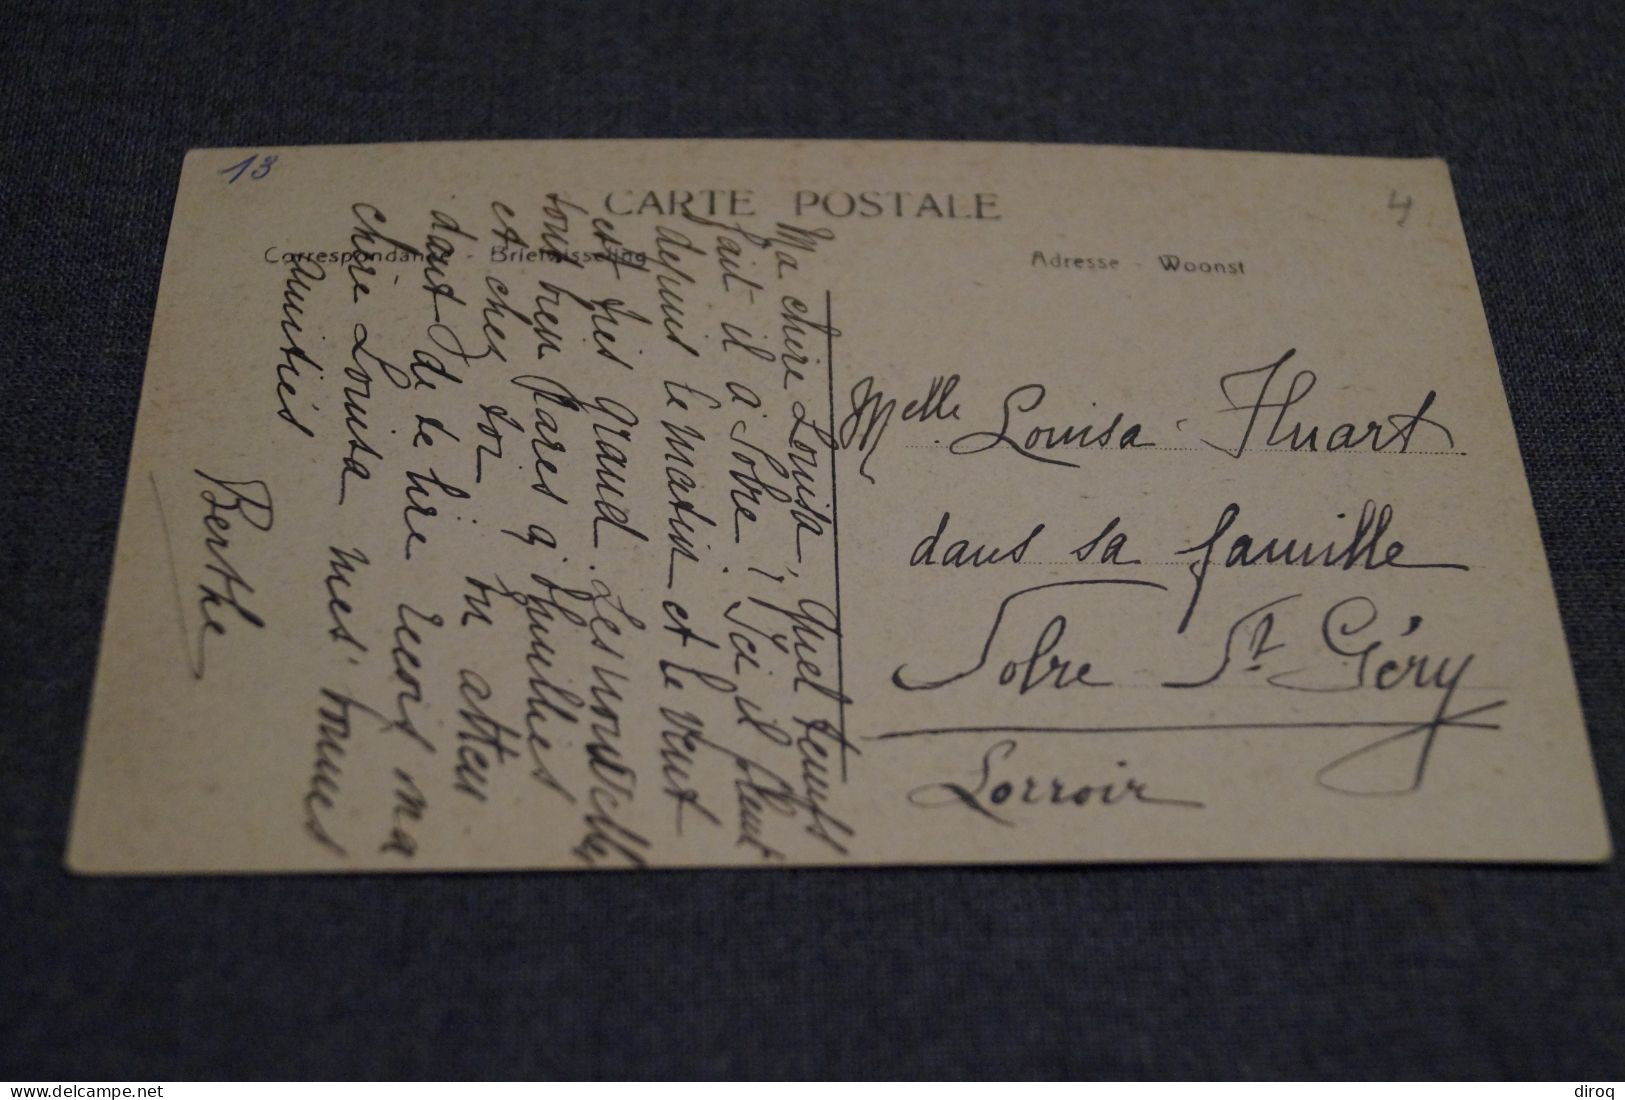 13
4
CARTE POSTALE
Correspondance - Briefwisseling
Adresse - Woonst
Ma chère Louisa, quel temps
fait il à Solre ? Ici il pleut
depuis le matin et le vent
est très grand. Les nouvelles
sont bien rares
et chez toi. En atten
dant de te lire reçois ma
chère Louisa mes bonnes
amitiés
Berthe
Melle Louisa Huart
dans sa famille
Solre St Géry
Lorroir
delcampe.net
diroq